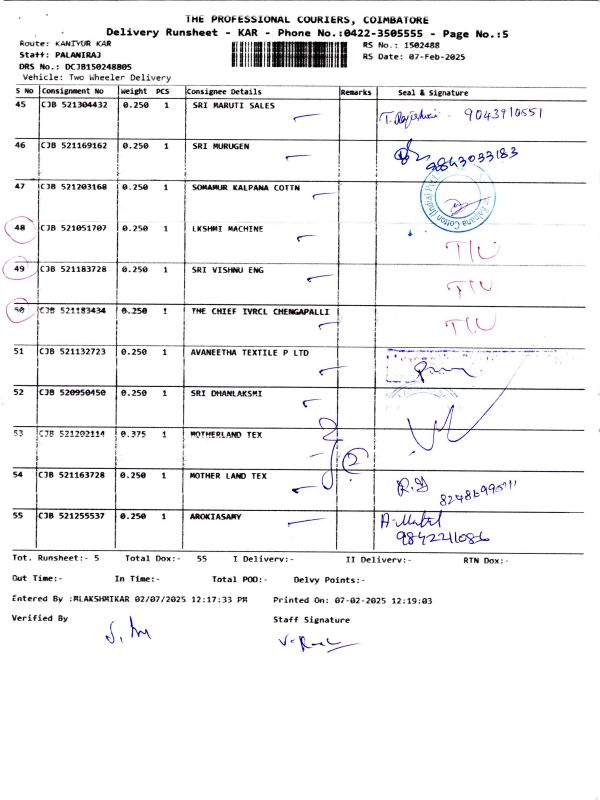 THE PROFESSIONAL COURIERS, COIMBATORE
Delivery Runsheet - KAR - Phone No.:0422-3505555 - Page No.:5
Route: KANIYUR KAR
RS No.: 1502488
Staff: PALANIRAJ
RS Date: 07-Feb-2025
DRS No.: DCJB150248805
Vehicle: Two Wheeler Delivery
S No Consignment No Weight PCS Consignee Details Remarks Seal & Signature
45 CJB 521304432 0.250 1 SRI MARUTI SALES 9043910551
46 CJB 521169162 0.250 1 SRI MURUGEN 9843033183
47 CJB 521203168 0.250 1 SOMAMUR KALPANA COTTN
48 CJB 521051707 0.250 1 LKSHMI MACHINE T/U
49 CJB 521183728 0.250 1 SRI VISHNU ENG T/U
50 CJB 521183434 0.250 1 THE CHIEF IVRCL CHENGAPALLI T/U
51 CJB 521132723 0.250 1 AVANEETHA TEXTILE P LTD
52 CJB 520950450 0.250 1 SRI DHANLAKSMI
53 CJB 521202114 0.375 1 MOTHERLAND TEX
54 CJB 521163728 0.250 1 MOTHER LAND TEX
55 CJB 521255537 0.250 1 AROKIASAMY 9842211086
Tot. Runsheet:- 5 Total Dox:- 55 I Delivery:- II Delivery:- RTN Dox:-
Out Time:- In Time:- Total POD:- Delvy Points:-
Entered By :MLAKSHMIKAR 02/07/2025 12:17:33 PM Printed On: 07-02-2025 12:19:03
Verified By Staff Signature